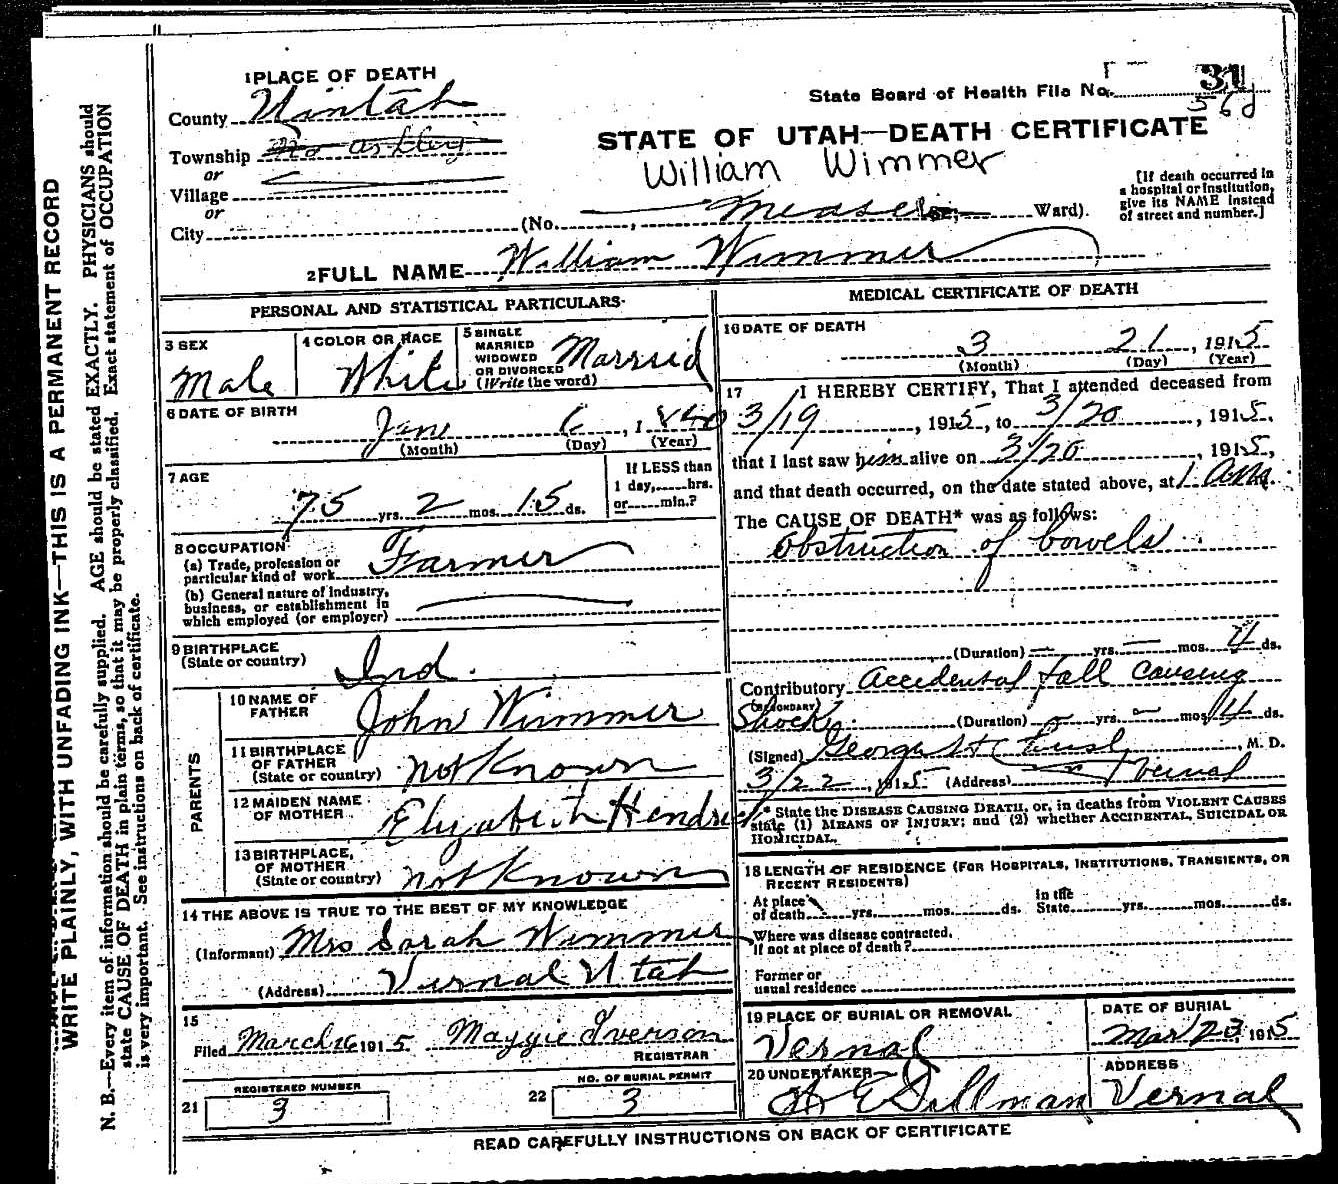 1 PLACE OF DEATH
State Board of Health File No. 31
568
County Uintah
STATE OF UTAH—DEATH CERTIFICATE
Township
William Wimmer
or
Village
or
City (No. , Ward).
[If death occurred in
a hospital or institution,
give its NAME instead
of street and number.]
2 FULL NAME William Wimmer
PERSONAL AND STATISTICAL PARTICULARS
3 SEX
Male
4 COLOR OR RACE
White
5 SINGLE
MARRIED
WIDOWED
OR DIVORCED
(Write the word)
Married
6 DATE OF BIRTH
Jane 6, 1840
(Month) (Day) (Year)
7 AGE
75 yrs. 2 mos. 15 ds.
If LESS than
1 day,.....hrs.
or.....min.?
8 OCCUPATION
(a) Trade, profession or
particular kind of work Farmer
(b) General nature of Industry,
business, or establishment in
which employed (or employer)
9 BIRTHPLACE
(State or country)
Ind.
PARENTS
10 NAME OF
FATHER
John Wimmer
11 BIRTHPLACE
OF FATHER
(State or country)
not Known
12 MAIDEN NAME
OF MOTHER
Elizabeth
13 BIRTHPLACE,
OF MOTHER
(State or country)
not Known
14 THE ABOVE IS TRUE TO THE BEST OF MY KNOWLEDGE
(Informant) Mrs Sarah Wimmer
(Address) Vernal Utah
15
Filed March 1915 Maggie Iverson
REGISTRAR
REGISTERED NUMBER
21 3
NO. OF BURIAL PERMIT
22 3
MEDICAL CERTIFICATE OF DEATH
16 DATE OF DEATH
3 21, 1915
(Month) (Day) (Year)
17 I HEREBY CERTIFY, That I attended deceased from
3/19, 1915, to 3/20, 1915,
that I last saw him alive on 3/20, 1915,
and that death occurred, on the date stated above, at 1 am.
The CAUSE OF DEATH* was as follows:
Obstruction of bowels
(Duration) — yrs. — mos. 4 ds.
Contributory Accidental fall causing
(SECONDARY)
Shock (Duration) yrs. — mos. 4 ds.
(Signed) George H , M. D.
3/22, 1915 (Address) Vernal
* State the DISEASE CAUSING DEATH, or, in deaths from VIOLENT CAUSES
state (1) MEANS OF INJURY; and (2) whether ACCIDENTAL, SUICIDAL OR
HOMICIDAL.
18 LENGTH OF RESIDENCE (FOR HOSPITALS, INSTITUTIONS, TRANSIENTS, OR
RECENT RESIDENTS)
At place
of death yrs. mos. ds.
In the
State yrs. mos. ds.
Where was disease contracted,
If not at place of death?
Former or
usual residence
19 PLACE OF BURIAL OR REMOVAL
Vernal
DATE OF BURIAL
Mar 23 1915
20 UNDERTAKER
Dillman
ADDRESS
Vernal
READ CAREFULLY INSTRUCTIONS ON BACK OF CERTIFICATE
WRITE PLAINLY, WITH UNFADING INK—THIS IS A PERMANENT RECORD
N. B.—Every item of information should be carefully supplied. AGE should be stated EXACTLY. PHYSICIANS should
state CAUSE OF DEATH in plain terms, so that it may be properly classified. Exact statement of OCCUPATION
is very important. See instructions on back of certificate.